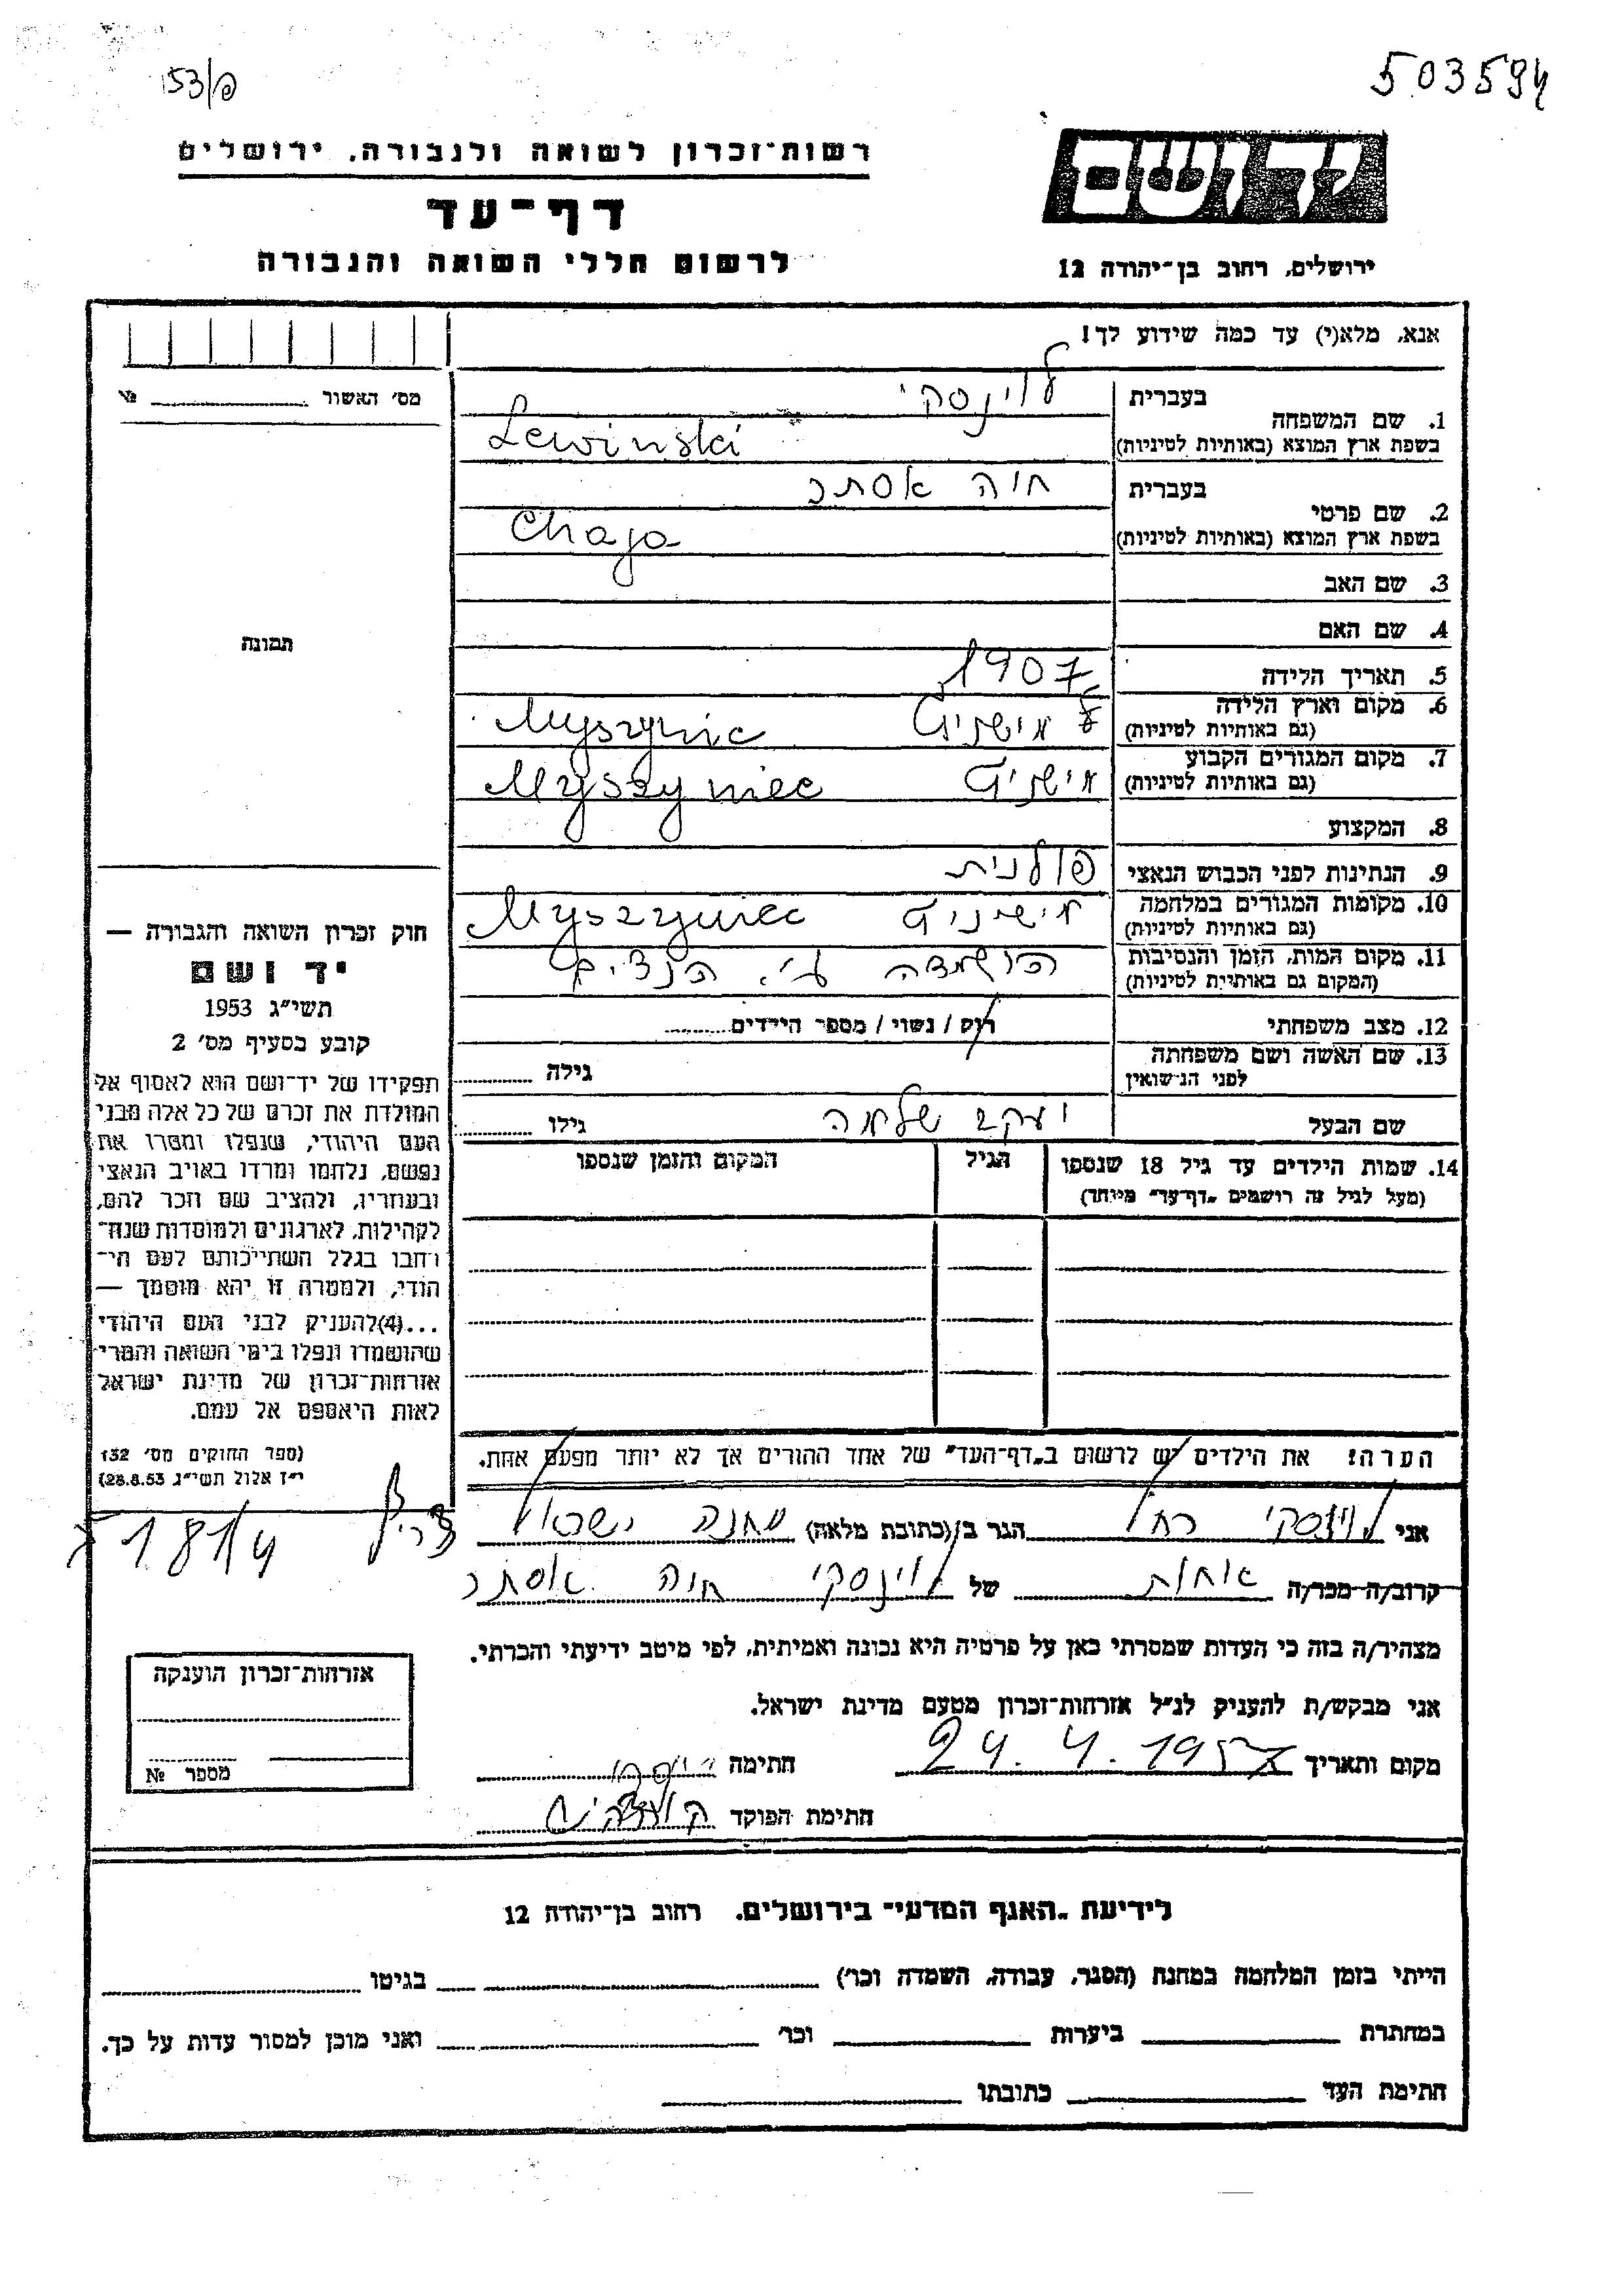 503594
פ/153
יד ושם
ירושלים, רחוב בן־יהודה 12
רשות־זכרון לשואה ולגבורה, ירושלים
דף־עד
לרשום חללי השואה והגבורה
אנא, מלא(י) עד כמה שידוע לך!
1. שם המשפחה
בעברית לוינסקי
בשפת ארץ המוצא (באותיות לטיניות) Lewinski
2. שם פרטי
בעברית חיה אסתר
בשפת ארץ המוצא (באותיות לטיניות) Chaja
3. שם האב
4. שם האם
5. תאריך הלידה 1907
6. מקום וארץ הלידה
(גם באותיות לטיניות) מישיניץ Myszynic
7. מקום המגורים הקבוע
(גם באותיות לטיניות) מישיניץ Myszyniec
8. המקצוע
9. הנתינות לפני הכבוש הנאצי פולנית
10. מקומות המגורים במלחמה
(גם באותיות לטיניות) מישיניץ Myszyniec
11. מקום המות, הזמן והנסיבות
(המקום גם באותיות לטיניות) הושמדה ע״י הנצים
12. מצב משפחתי רוק / נשוי / מספר הילדים
13. שם האשה ושם משפחתה
לפני הנישואין גילה
שם הבעל יעקב שלמה גילו
14. שמות הילדים עד גיל 18 שנספו הגיל המקום והזמן שנספו
(מעל לגיל זה רושמים „דף־עד״ מיוחד)
הערה! את הילדים יש לרשום ב„דף־העד״ של אחד ההורים אך לא יותר מפעם אחת.
מס׳ האשור №
תמונה
חוק זכרון השואה והגבורה —
יד ושם
תשי״ג 1953
קובע בסעיף מס׳ 2
תפקידו של יד־ושם הוא לאסוף אל
המולדת את זכרם של כל אלה מבני
העם היהודי, שנפלו ומסרו את
נפשם, נלחמו ומרדו באויב הנאצי
ובעוזריו, ולהציב שם וזכר להם,
לקהילות, לארגונים ולמוסדות שנח־
רבו בגלל השתייכותם לעם הי־
הודי, ולמטרה זו יהא מוסמך —
...(4)להעניק לבני העם היהודי
שהושמדו ונפלו בימי השואה והמרי
אזרחות־זכרון של מדינת ישראל
לאות היאספם אל עמם.
(ספר החוקים מס׳ 132
י״ז אלול תשי״ג 28.8.53)
אני לוינסקי רחל הגר ב/(כתובת מלאה) מחנה ישראל צריף 181/4
קרוב/ה מכר/ה אחות של לוינסקי חיה אסתר
מצהיר/ה בזה כי העדות שמסרתי כאן על פרטיה היא נכונה ואמיתית, לפי מיטב ידיעתי והכרתי.
אני מבקש/ת להעניק לנ״ל אזרחות־זכרון מטעם מדינת ישראל.
מקום ותאריך 24.4.1957 חתימה
חתימת הפוקד
אזרחות־זכרון הוענקה
מספר №
לידיעת „האגף המדעי״ בירושלים, רחוב בן־יהודה 12
הייתי בזמן המלחמה במחנה (הסגר, עבודה, השמדה וכו׳) בגיטו
במחתרת ביערות וכו׳ ואני מוכן למסור עדות על כך.
חתימת העד כתובתו